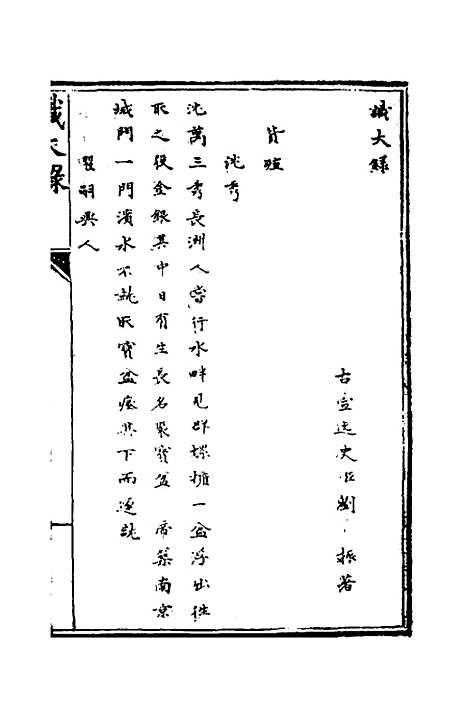 識大錄
古宣逸史臣劉 振著
貨殖
沈秀
沈萬三秀長洲人嘗行水畔見群螺擁一盆浮出往
取之投金銀其中日有生長名聚寶盆 帝築南京
城門一門濱水不就取寶盆瘞其下而遂就
嬰湖興人
識大錄